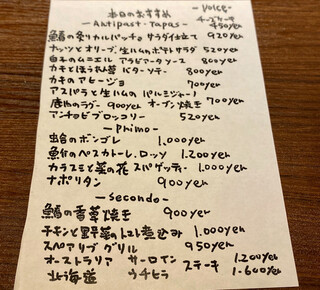 本日のおすすめ
- Antipast・Tapas -
- Dolce -
チーズケーキ
450yen
鰆の炙りカルパッチョ サラダ仕立て 920yen
ナッツとオリーブ、生ハムのポテトサラダ 520yen
白子のムニエル アラビアータソース 800yen
カキとほうれん草 バターソテー 800yen
カキのアヒージョ 700yen
アスパラと生ハムの パルミジャーノ
オーブン焼き 700yen
鹿肉のラグー 900yen
アンチョビブロッコリー 520yen
- Primo -
蛤のボンゴレ 1.000yen
魚介のペスカトーレ.ロッソ 1.200yen
カラスミと菜の花 スパゲッティー 1.000yen
ナポリタン 900yen
- secondo -
鰆の香草焼き 900yen
チキンと野菜のトマト煮込み 1.000yen
スペアリブグリル 950yen
オーストラリア サーロイン ステーキ 1.200yen
北海道 ウチヒラ 1.600yen